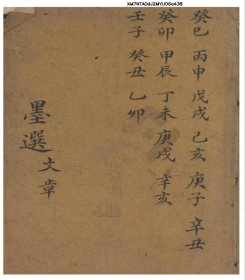 XM7NTAD6J2MYUO5o438
癸巳 丙申 戊戌 己亥 庚子 辛丑
癸卯 甲辰 丁未 庚戌 辛亥
壬子 癸丑 乙卯
墨選文章